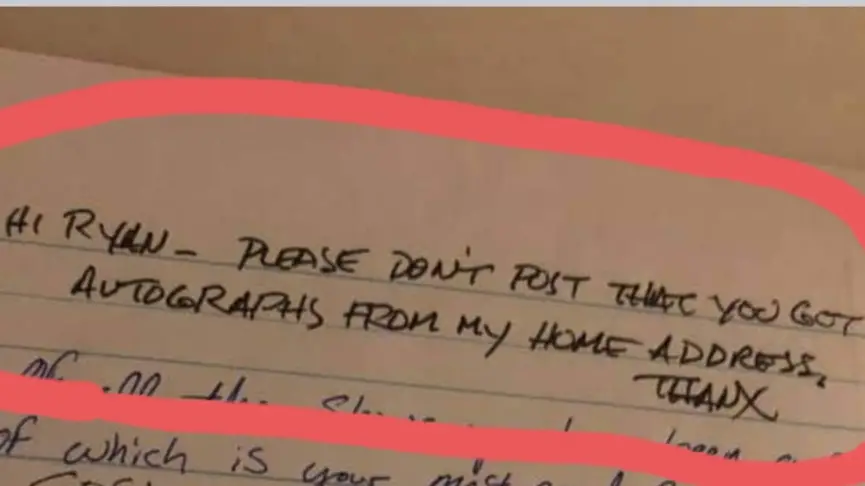 HI RYAN - PLEASE DON'T POST THAT YOU GOT
AUTOGRAPHS FROM MY HOME ADDRESS,
THANX
of all the
of which is your